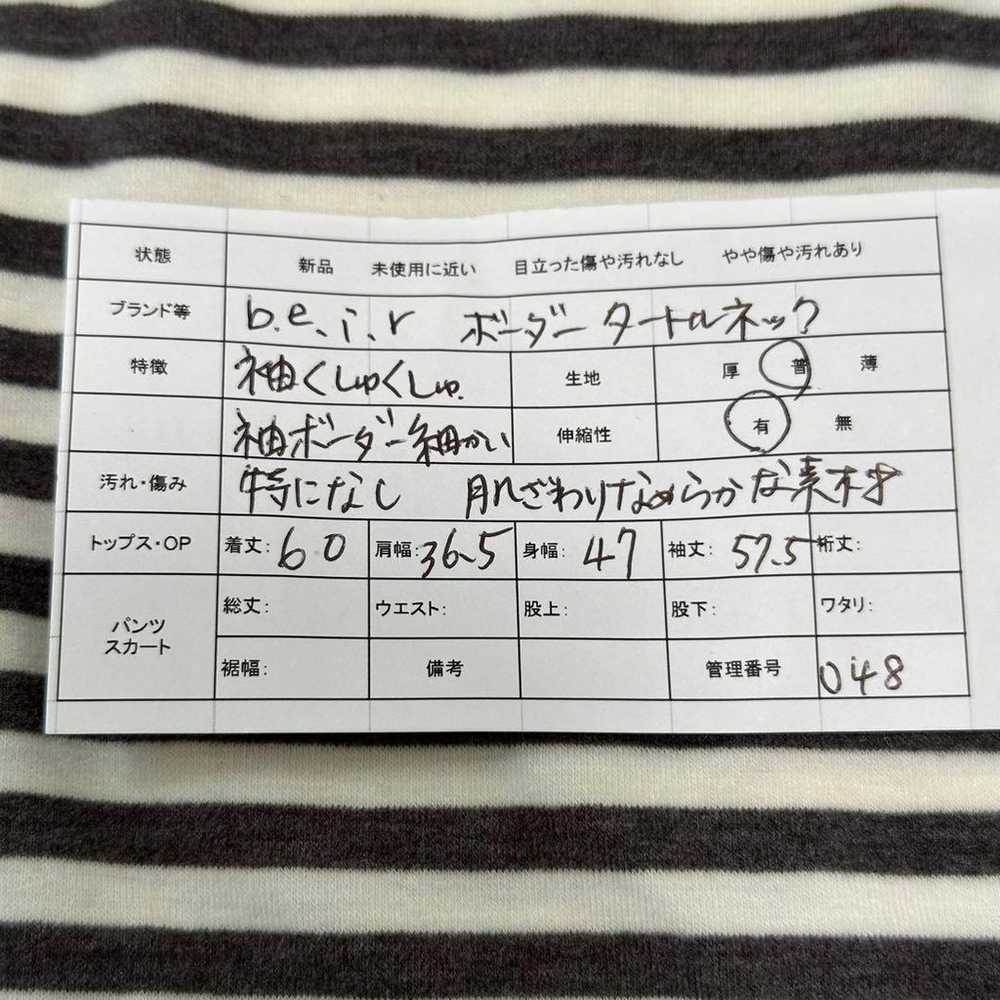 状態 新品 未使用に近い 目立った傷や汚れなし やや傷や汚れあり
ブランド等 b.e.i.r ボーダータートルネック
特徴 袖くしゅくしゅ 生地 厚 普 薄
袖ボーダー細かい 伸縮性 有 無
汚れ・傷み 特になし 肌ざわりなめらかな素材
トップス・OP 着丈: 60 肩幅: 36.5 身幅: 47 袖丈: 57.5 裄丈:
パンツ スカート 総丈: ウエスト: 股上: 股下: ワタリ:
裾幅: 備考 管理番号 048